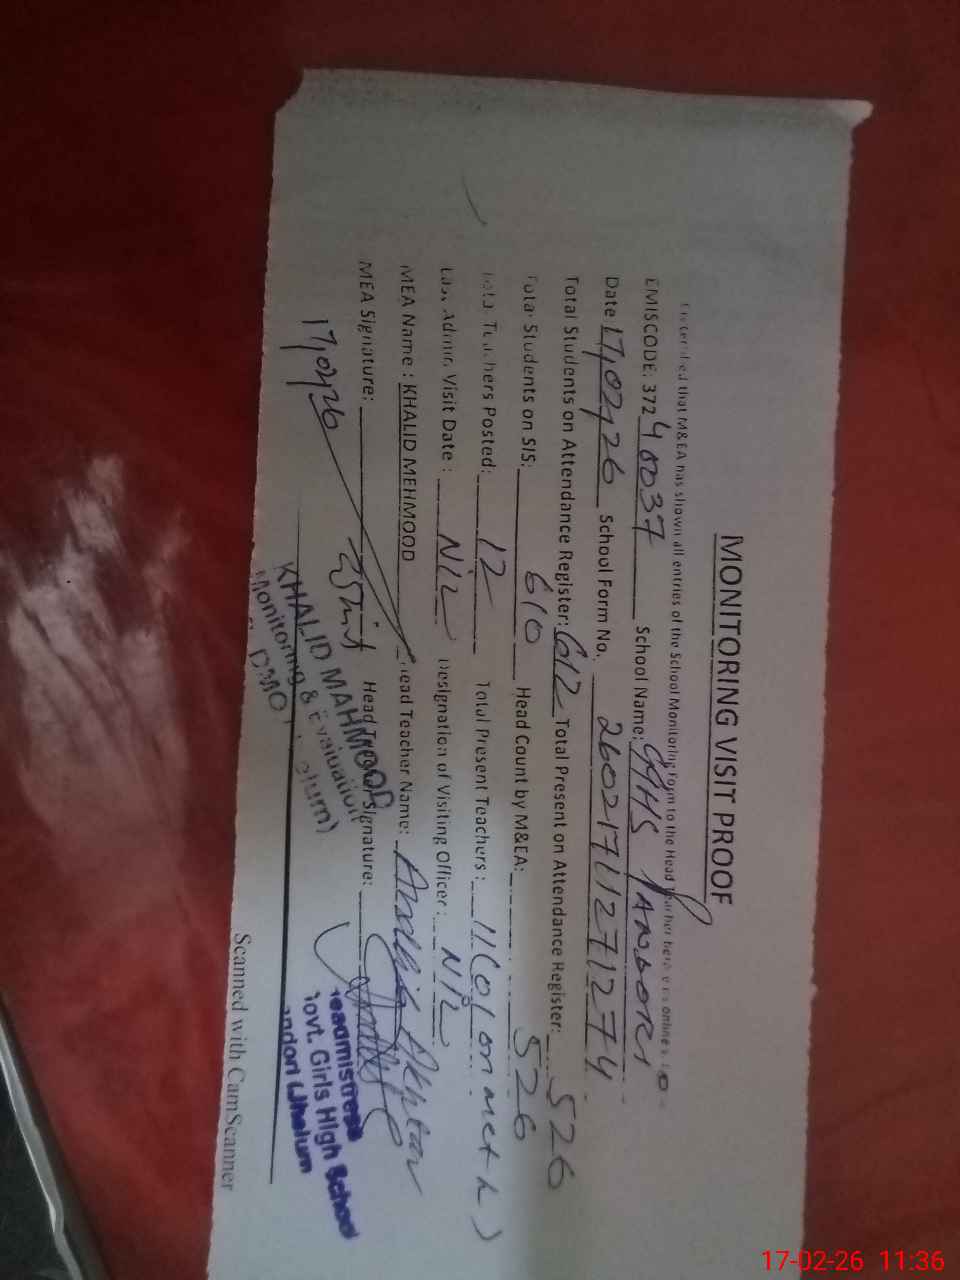 MONITORING VISIT PROOF
that M&EA has shown all entries of the School Monitoring Form to the Head
EMISCODE: 37240037 School Name: GGHS
Date 17,02,26 School Form No. 260217112712274
Total Students on Attendance Register: 612 Total Present on Attendance Register: 526
Total Students on SIS: 610 Head Count by M&EA: 526
Teachers Posted: 12 Total Present Teachers: 11(01 on
Visit Date: Nil Designation of Visiting Officer: Nil
MEA Name: KHALID MEHMOOD Head Teacher Name: Akhtar
MEA Signature: Head Teacher Signature:
17,02,26
KHALID MAHMOOD
Monitoring & Evaluation
Headmistress
Govt. Girls High School
Jhelum
Scanned with CamScanner
17-02-26 11:36